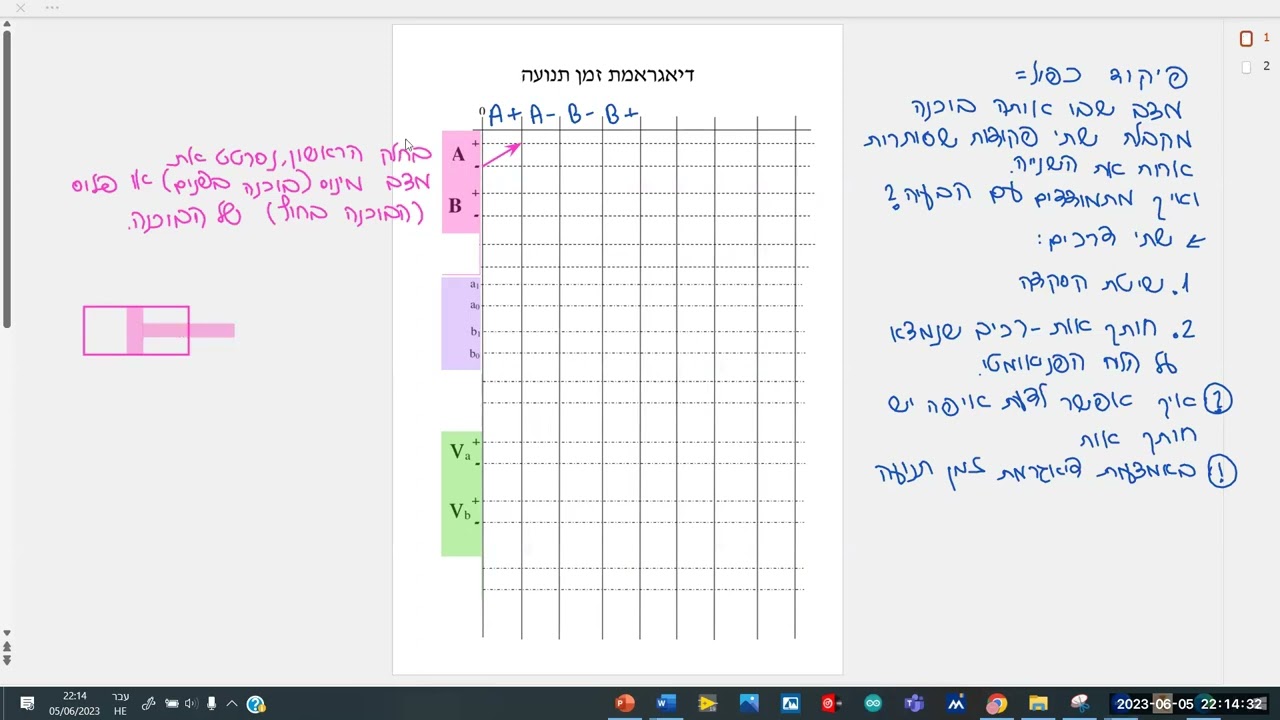 דיאגראמת זמן תנועה
0 A+ A- B- B+
A + -
B + -
a1
a0
b1
b0
Va + -
Vb + -
פיקוד כפול=
מצב שבו אותה בוכנה
מקבלת שתי פקודות שסותרות
אחת את השנייה.
ואיך מתמודדים עם הבעיה?
← שתי דרכים:
1. שיטת הסקדה
2. חותך אות - רכיב שנמצא
על הלוח הפניאומטי.
? איך אפשר לדעת איפה יש
חותך אות
! באמצעות דיאגרמת זמן תנועה
בחלק הראשון, נסרטט את
מצב מינוס (בוכנה בפנים) או פלוס
(הבוכנה בחוץ) של הבוכנה.
1
2
22:14
05/06/2023
עבר
HE
2023-06-05 22:14:32